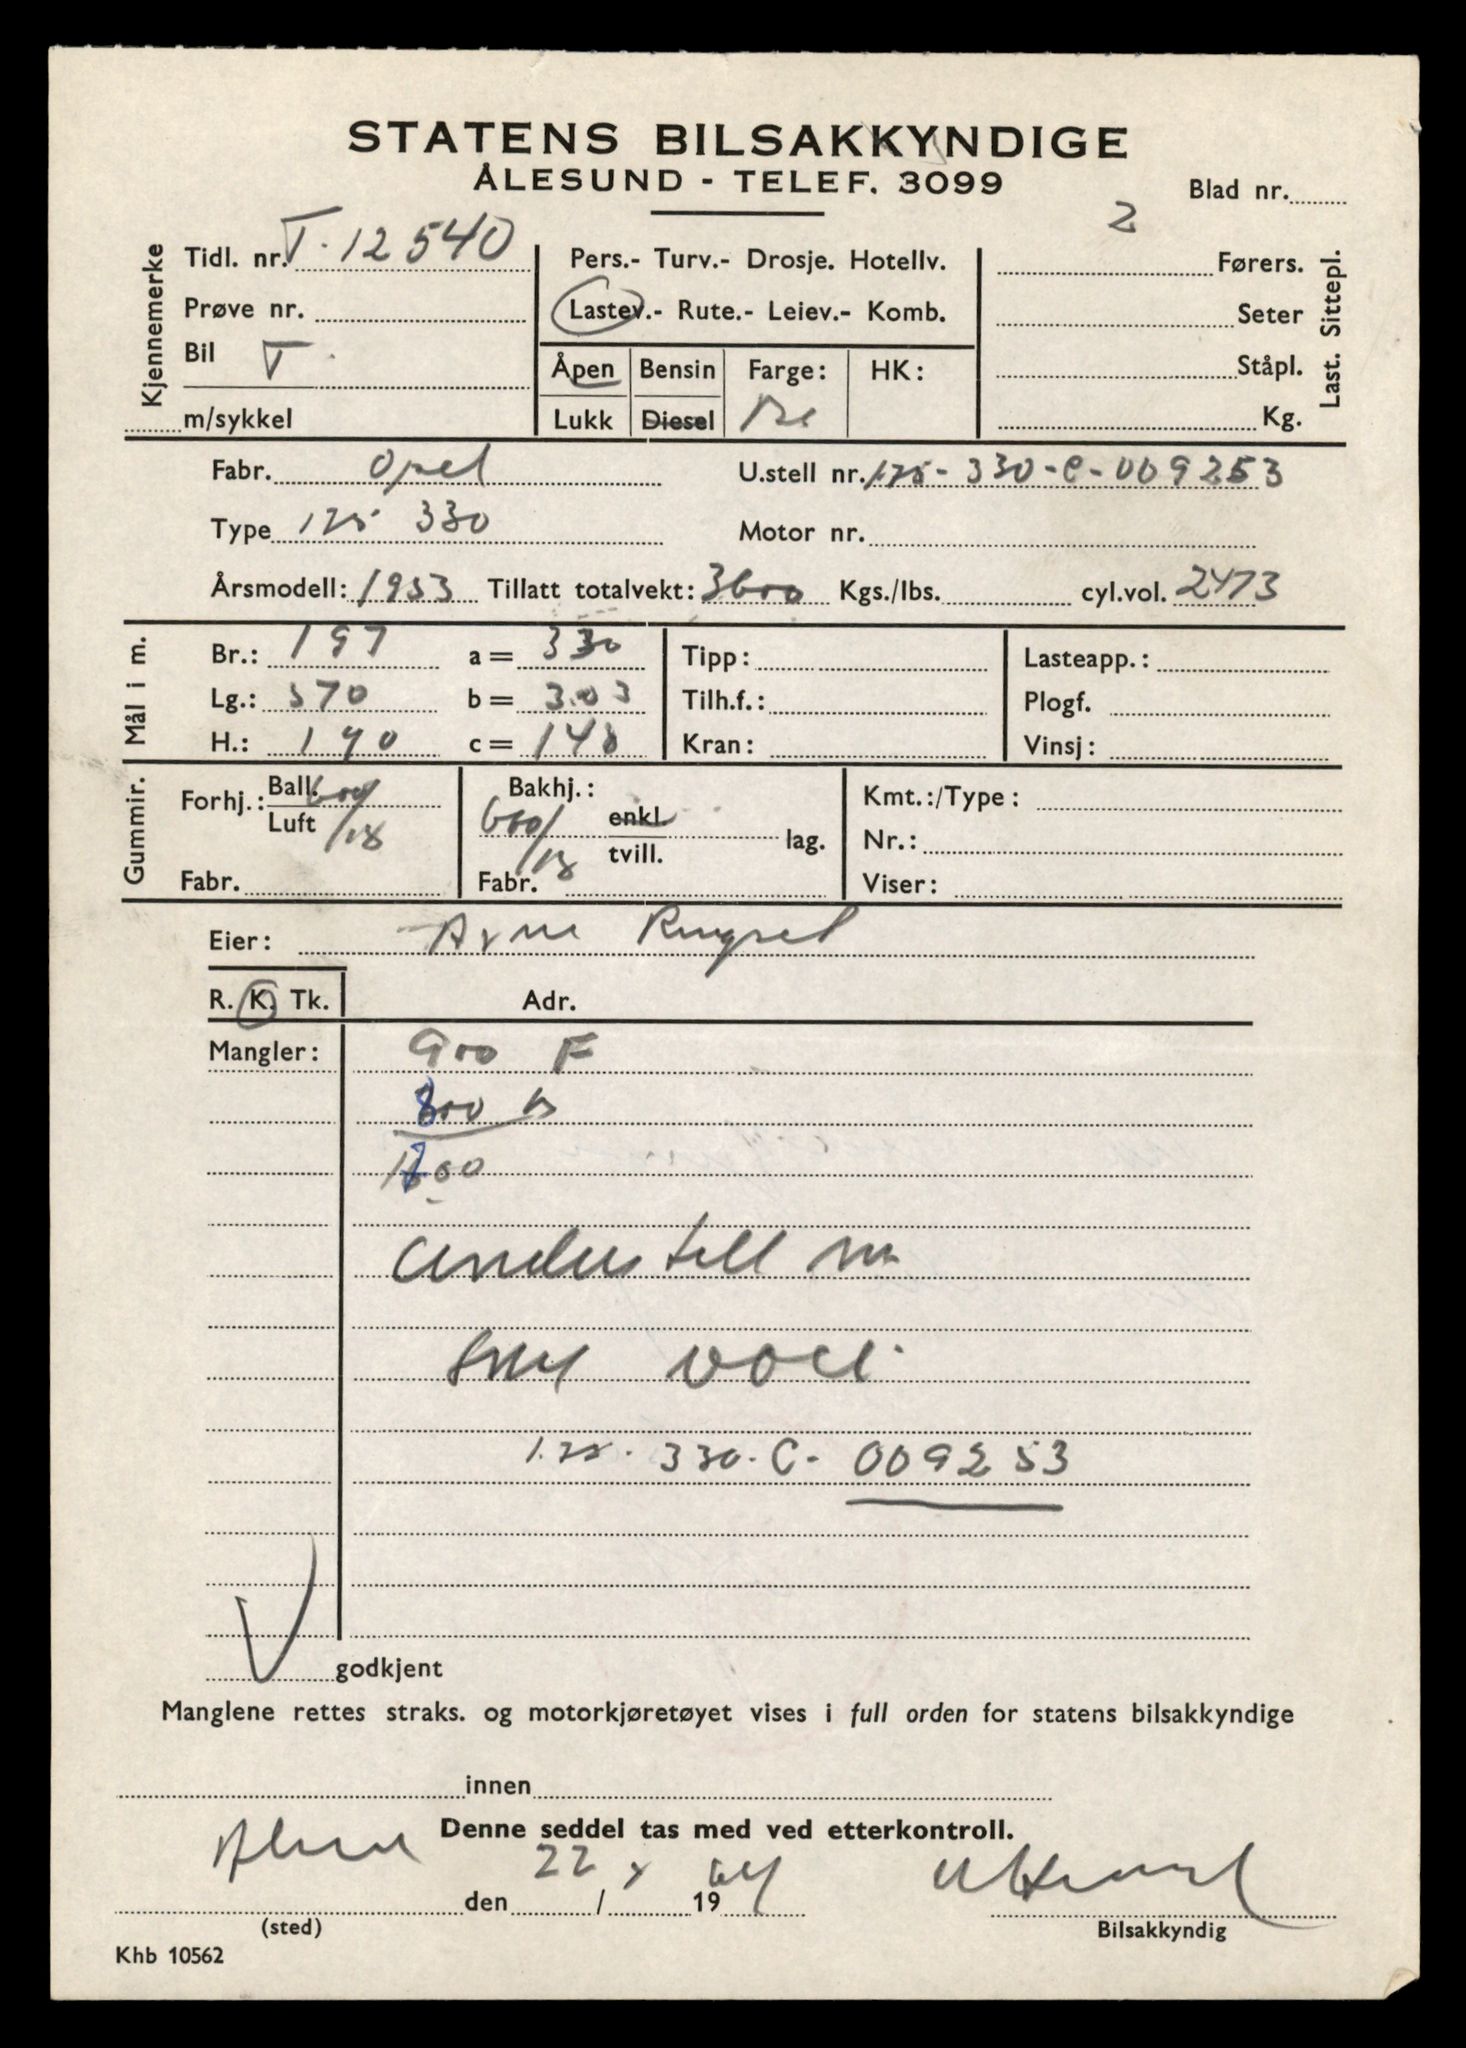 STATENS BILSAKKYNDIGE
ÅLESUND - TELEF. 3099
Blad nr.
Kjennemerke
Tidl. nr. T-12540
Pers.- Turv.- Drosje. Hotellv.
2 Førers.
Prøve nr.
Lastev.- Rute.- Leiev.- Komb.
Seter
Bil T
Åpen Bensin Farge: HK:
Ståpl.
m/sykkel
Lukk Diesel
Kg.
Last. Sittepl.
Fabr. Opel U.stell nr. 1.75-330-C-009253
Type 1.75 330 Motor nr.
Årsmodell: 1953 Tillatt totalvekt: 3600 Kgs./lbs. cyl.vol. 2473
Mål i m.
Br.: 197 a = 330 Tipp: Lasteapp.:
Lg.: 570 b = 3.03 Tilh.f.: Plogf.
H.: 190 c = 148 Kran: Vinsj:
Gummir.
Forhj.: Ball. Luft 600/18 Bakhj.: 600/18 enkl. tvill. lag. Kmt.:/Type:
Nr.:
Fabr. Fabr. Viser:
Eier: Arne Ringset
R. K. Tk. Adr.
Mangler: 900 F
800 B
1700
Understell nr
1.75-330-C-009253
godkjent
Manglene rettes straks. og motorkjøretøyet vises i full orden for statens bilsakkyndige
innen
Denne seddel tas med ved etterkontroll.
den 22 / x 1964
(sted) Bilsakkyndig
Khb 10562